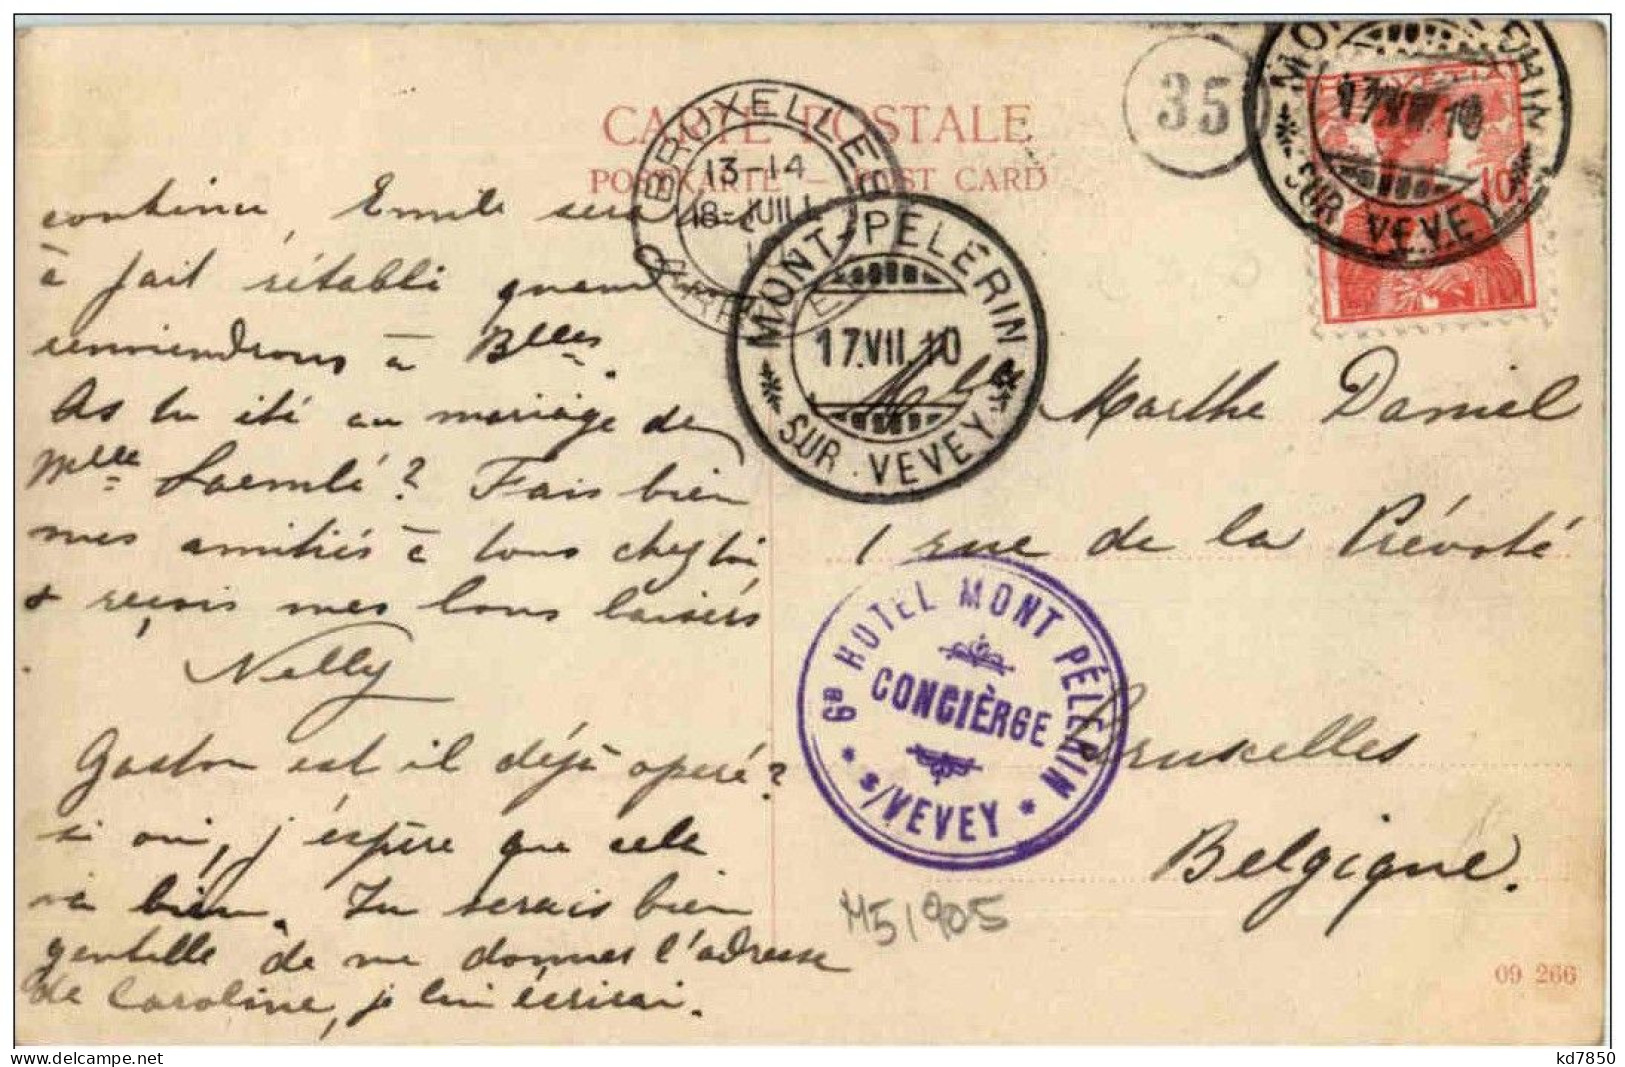 CARTE POSTALE
POSTKARTE — POST CARD
BRUXELLES
13-14
18-JUILL
MONT-PELERIN
17.VII.10
SUR VEVEY
35
HELVETIA
10
MONT PELERIN
17.VII.10
SUR VEVEY
continue, Emile sera
à fait rétabli quand
reviendrons à Blles.
As tu été au mariage de
Mlle Laemlé? Fais bien
mes amitiés à tous chez toi
& reçois mes bons baisers
Nelly
Gaston est il déjà operé?
si oui, j'espère que cela
va bien. Tu serais bien
gentille de me donner l'adresse
de Caroline, je lui écrirai.
Mlle Marthe Daniel
1 rue de la Prévoté
Bruxelles
Belgique.
HOTEL MONT PÉLERIN
CONCIÈRGE
s/VEVEY
M51905
09 266
www.delcampe.net
kd7850